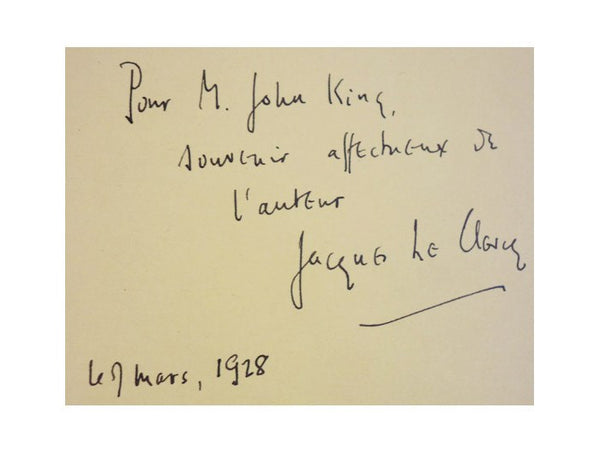 Pour M. John King,
souvenir affectueux de
l'auteur
Jacques Le Clercq
le mars, 1928